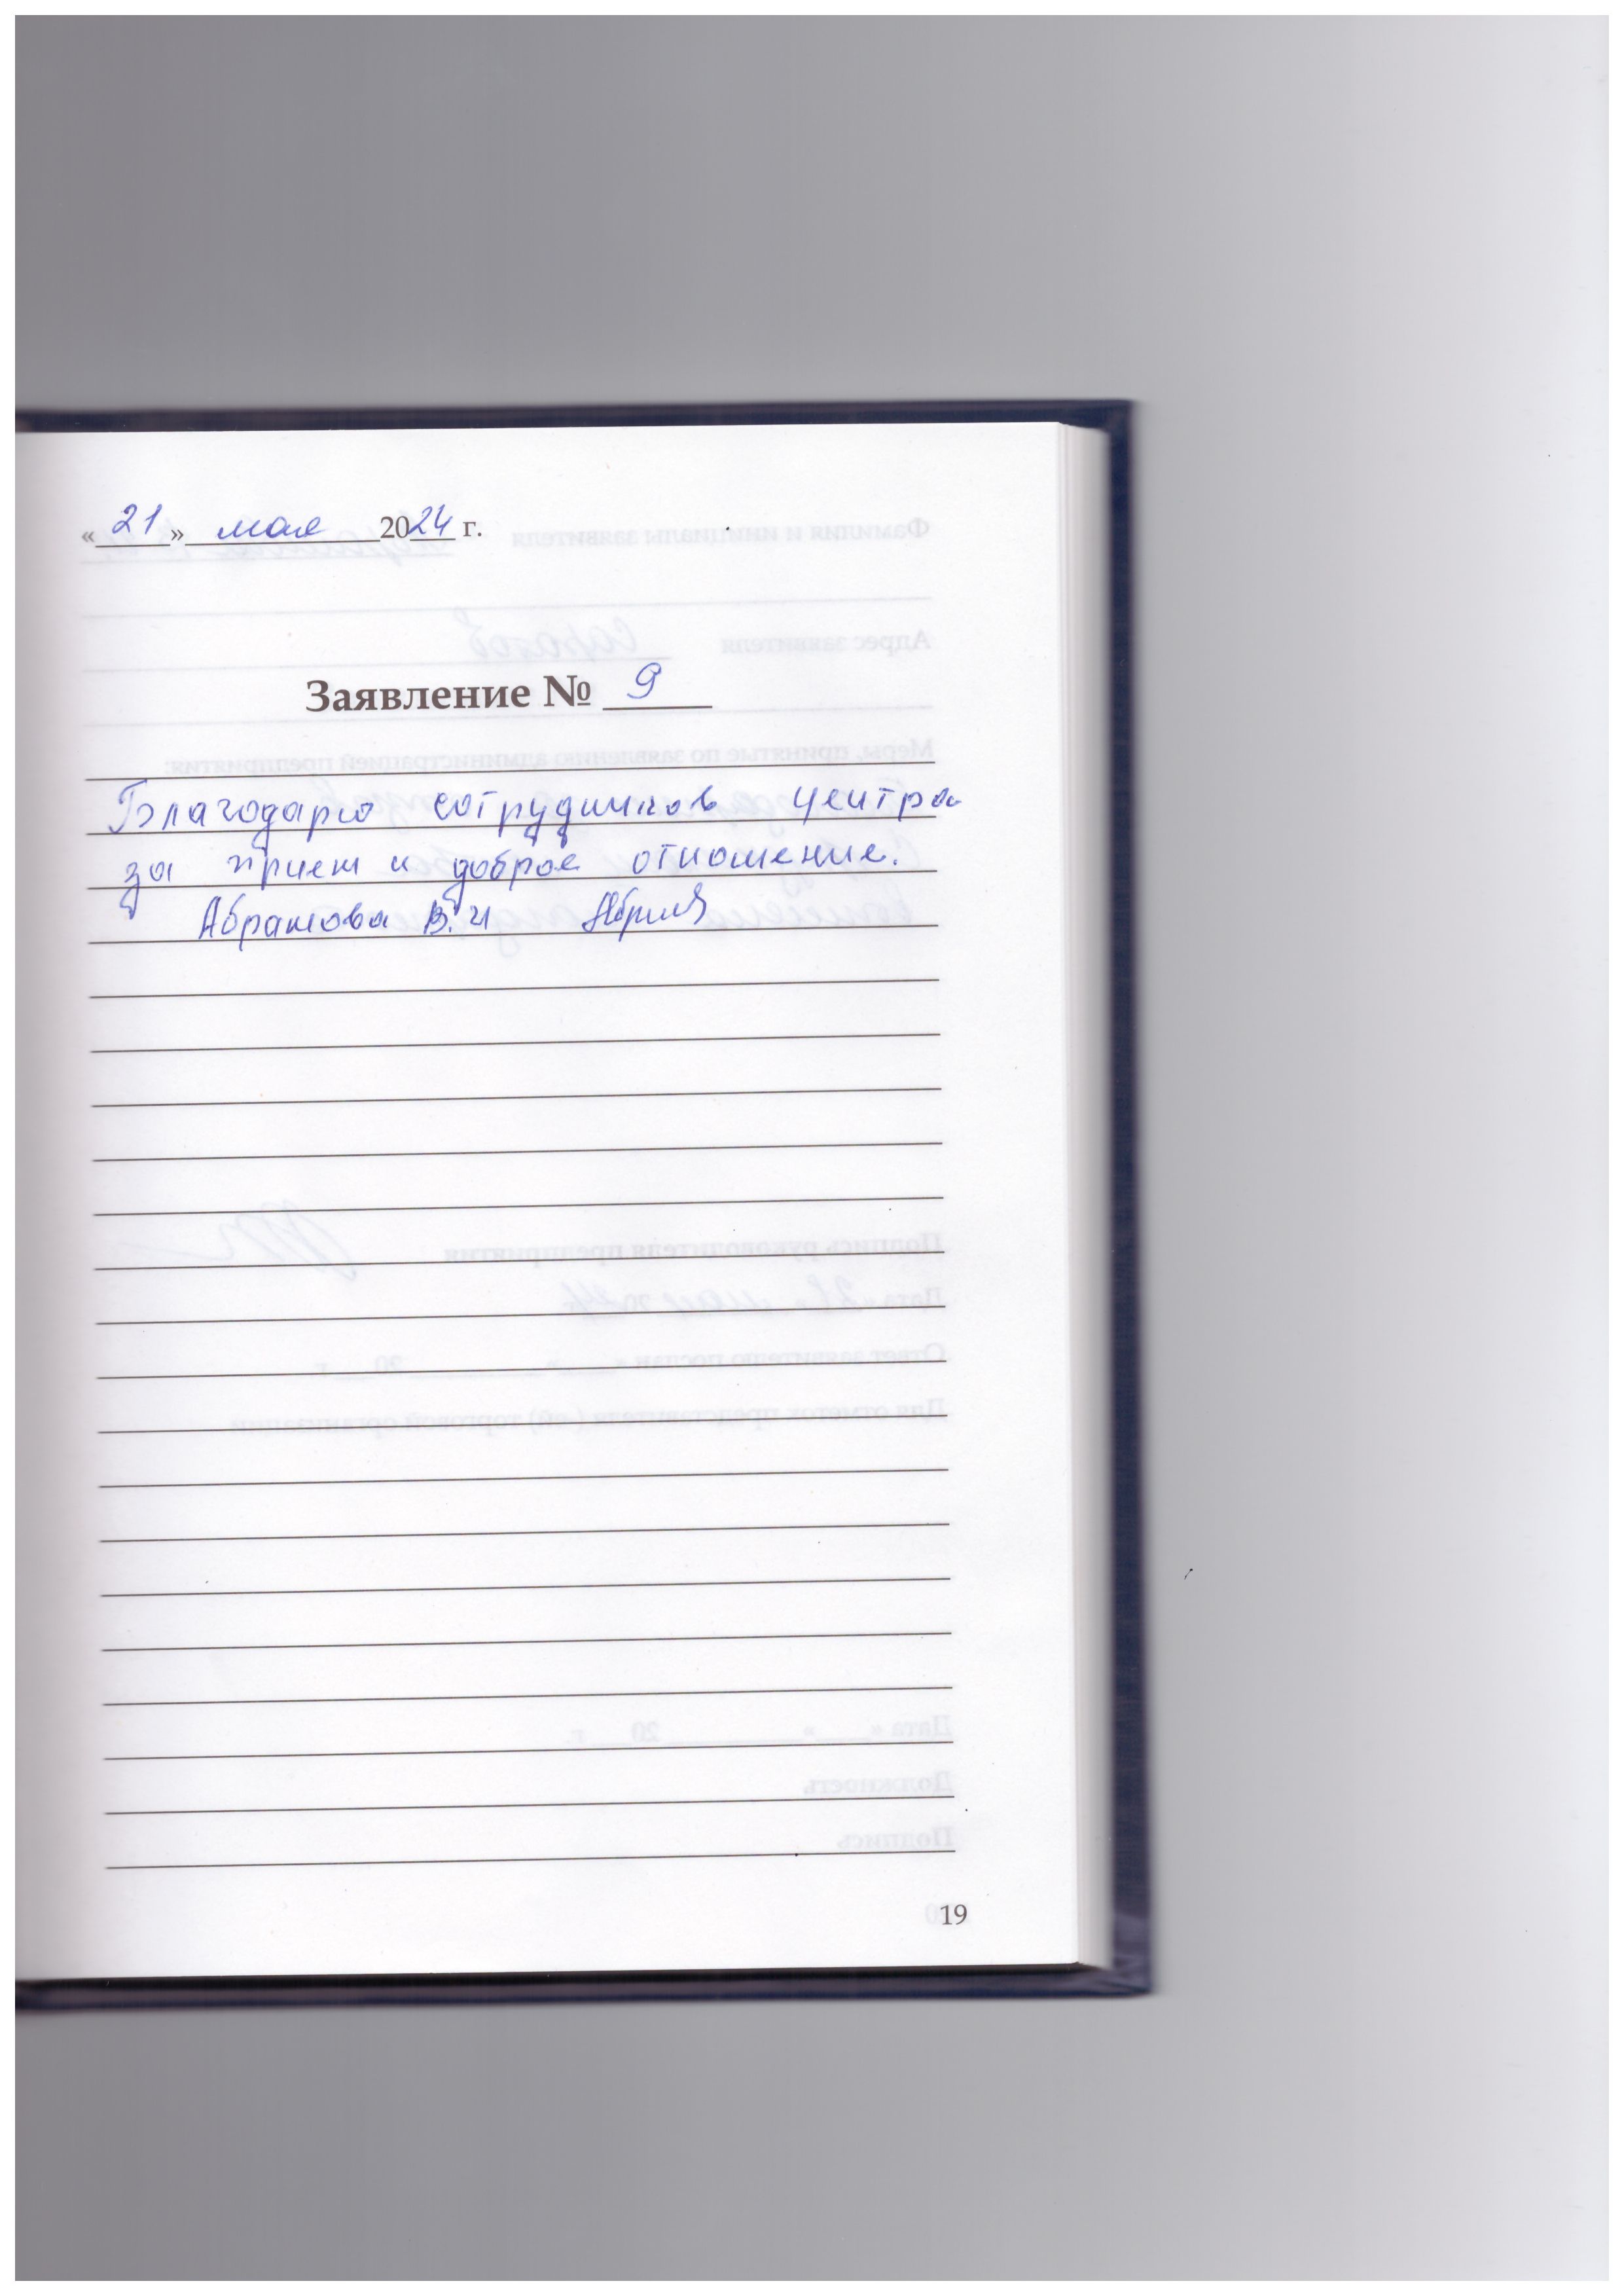 «21» мая 2024 г.
Заявление № 9
Благодарю сотрудников центра
за прием и доброе отношение.
Абрамова В.И
19